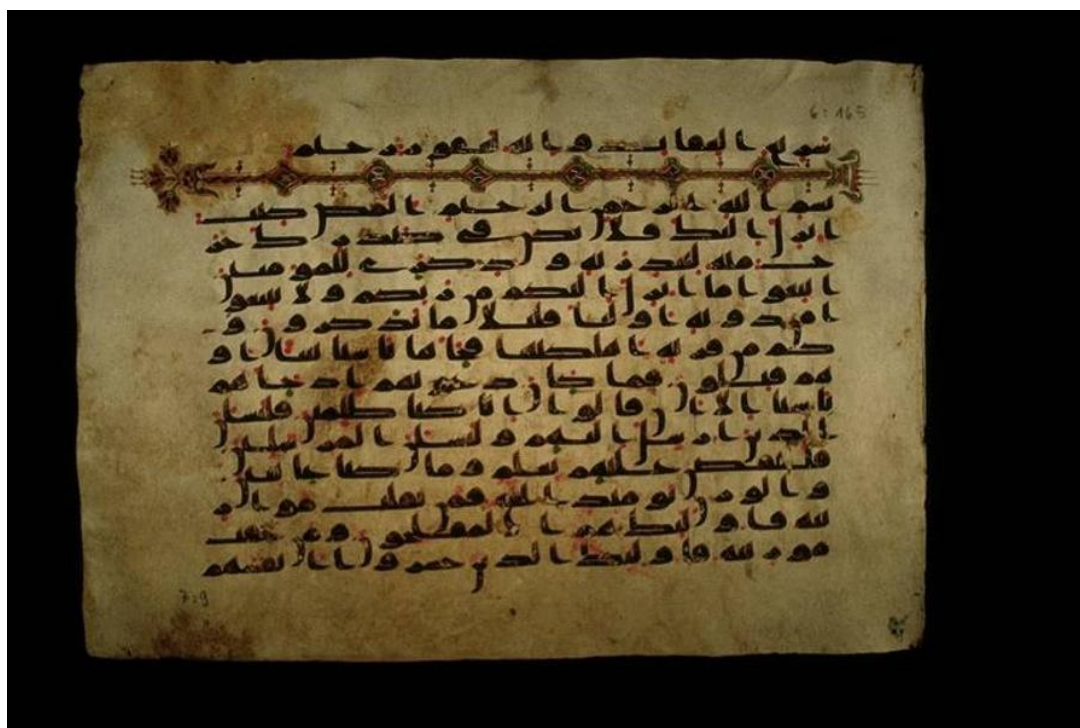 6:165
سريع العقاب وانه لغفور رحيم
بسم الله الرحمن الرحيم المص كتب
انزل اليك فلا يكن في صدرك حر
ج منه لتنذر به وذكرى للمومنين
اتبعوا ما انزل اليكم من ربكم ولا تتبعوا
من دونه اوليا قليلا ما تذكرون و
كم من قرية اهلكنها فجاها باسنا بيتا او
هم قايلون فما كان دعويهم اذ جاهم
باسنا الا ان قالوا انا كنا ظلمين فلنسلن
الذين ارسل اليهم ولنسلن المرسلين
فلنقصن عليهم بعلم وما كنا غايبين
والوزن يومئذ الحق فمن ثقلت موازي
نه فاوليك هم المفلحون ومن خفت
موزينه فاوليك الذين خسروا انفسهم
7:9